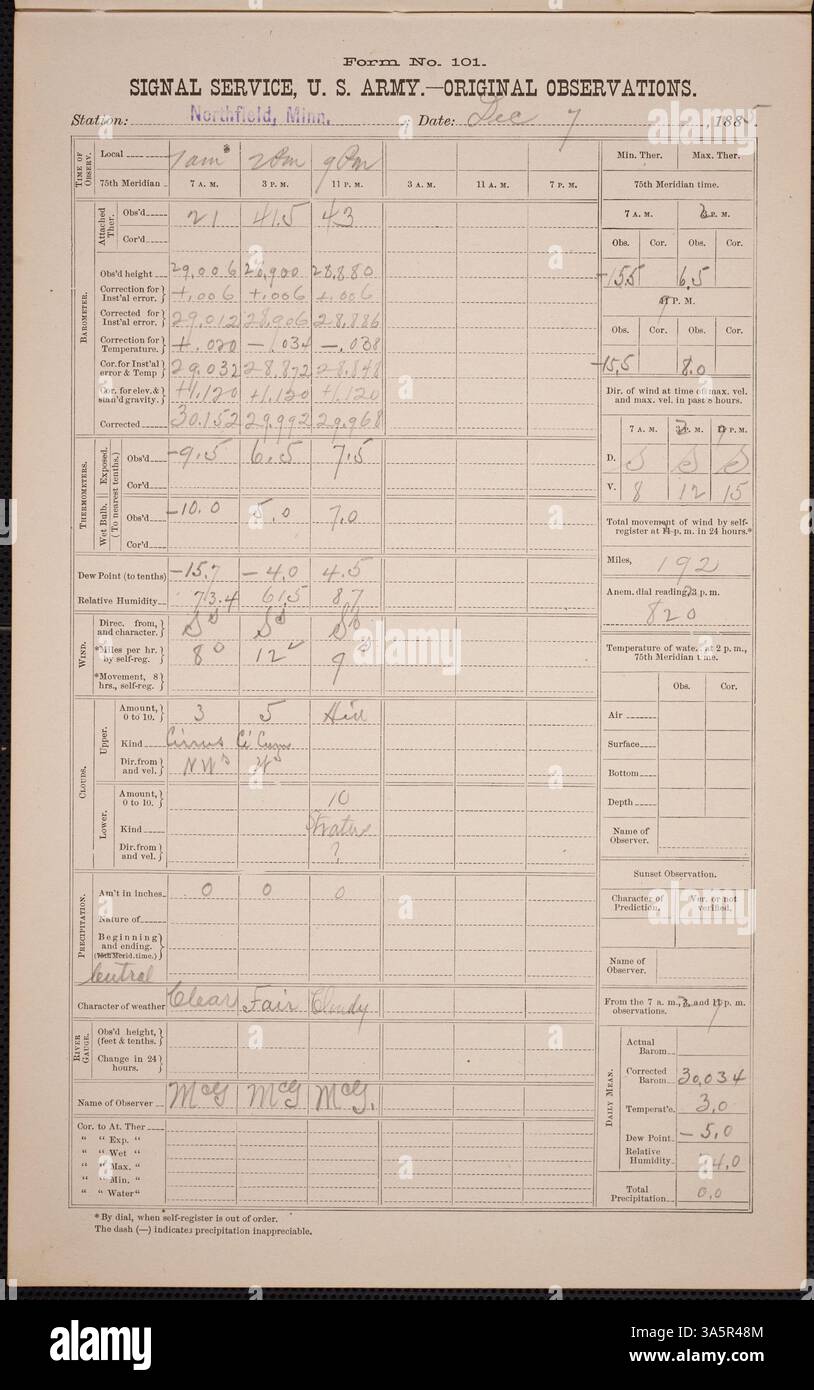 Form No. 101.
SIGNAL SERVICE, U. S. ARMY.—ORIGINAL OBSERVATIONS.
Station: Northfield, Minn. Date: Dec 7, 1885.
TIME OF OBSERV.
Local 7am 2Pm 9Pm
75th Meridian 7 A. M. 3 P. M. 11 P. M. 3 A. M. 11 A. M. 7 P. M.
BAROMETER.
Attached Ther.
Obs'd 21 41.5 43
Cor'd
Obs'd height 29.006 28.900 28.880
Correction for Inst'al error. +.006 +.006 +.006
Corrected for Inst'al error. 29.012 28.906 28.886
Correction for Temperature. +.020 —.034 —.038
Cor. for Inst'al error & Temp 29.032 28.872 28.848
Cor. for elev. & stan'd gravity. +1.120 +1.120 +1.120
Corrected 30.152 29.992 29.968
THERMOMETERS.
(To nearest tenths.)
Exposed.
Obs'd -9.5 6.5 7.5
Cor'd
Wet Bulb.
Obs'd -10.0 5.0 7.0
Cor'd
Dew Point (to tenths) -15.7 -4.0 4.5
Relative Humidity 73.4 61.5 87
WIND.
Direc. from, and character. S S S
*Miles per hr. by self-reg. 8 12 9
*Movement, 8 hrs., self-reg.
CLOUDS.
Upper.
Amount, 0 to 10. 3 5
Kind Cirrus Ci Cum
Dir. from and vel. NW W
Lower.
Amount, 0 to 10. 10
Kind Stratus
Dir. from and vel. ?
PRECIPITATION.
Am't in inches 0 0 0
Nature of
Beginning and ending. (75th Merid. time.)
Central
Character of weather Clear Fair Cloudy
RIVER GAUGE.
Obs'd height, (feet & tenths.
Change in 24 hours.
Name of Observer McG McG McG.
Cor. to At. Ther
“ “ Exp. “
“ “ Wet “
“ “ Max. “
“ “ Min. “
“ “ Water “
* By dial, when self-register is out of order.
The dash (—) indicates precipitation inappreciable.
Min. Ther. Max. Ther.
75th Meridian time.
7 A. M. 2 P. M.
Obs. Cor. Obs. Cor.
-15.5 6.5
9 P. M.
Obs. Cor. Obs. Cor.
-15.5 8.0
Dir. of wind at time of max. vel. and max. vel. in past 8 hours.
7 A. M. 2 P. M. 9 P. M.
D. S S S
V. 8 12 15
Total movement of wind by self-register at 11 p. m. in 24 hours.*
Miles, 192
Anem. dial reading, 3 p. m.
820
Temperature of water at 2 p. m., 75th Meridian time.
Obs. Cor.
Air
Surface
Bottom
Depth
Name of Observer.
Sunset Observation.
Character of Prediction. Ver. or not verified.
Name of Observer.
From the 7 a. m., 2, and 9 p. m. observations.
DAILY MEAN.
Actual Barom
Corrected Barom 30.034
Temperat'e. 3.0
Dew Point -5.0
Relative Humidity 4.0
Total Precipitation 0.0
alamy
Image ID: 3A5R48M
www.alamy.com